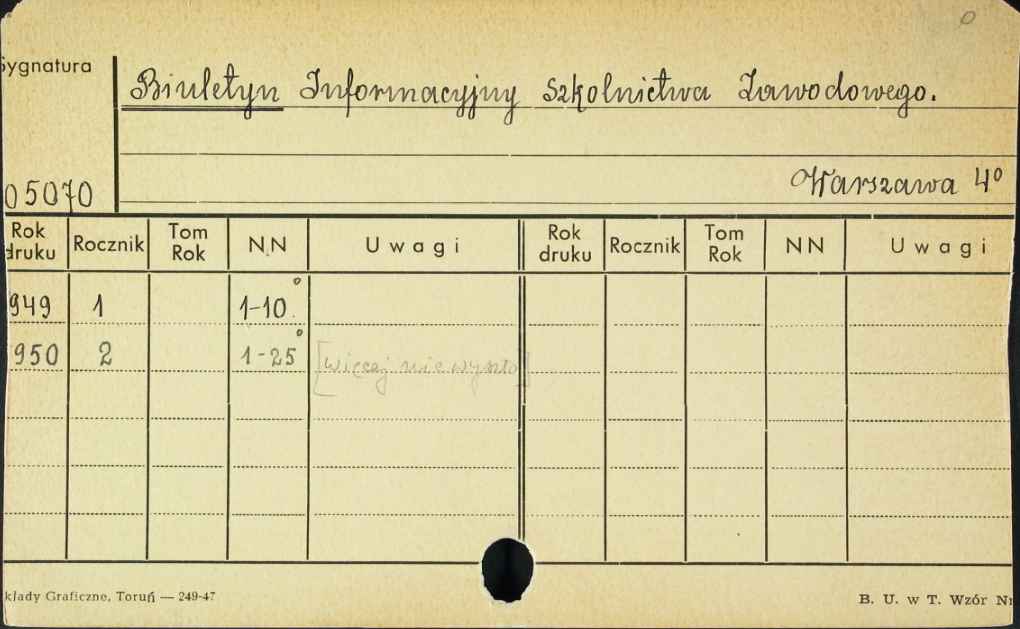 0
Sygnatura
Biuletyn Informacyjny Szkolnictwa Zawodowego.
Warszawa 4°
05070
Rok druku Rocznik Tom Rok N.N Uwagi Rok druku Rocznik Tom Rok NN Uwagi
949 1 1-10°
950 2 1-25° [więcej nie wyszło]
kłady Graficzne, Toruń — 249-47
B. U. w T. Wzór Nr